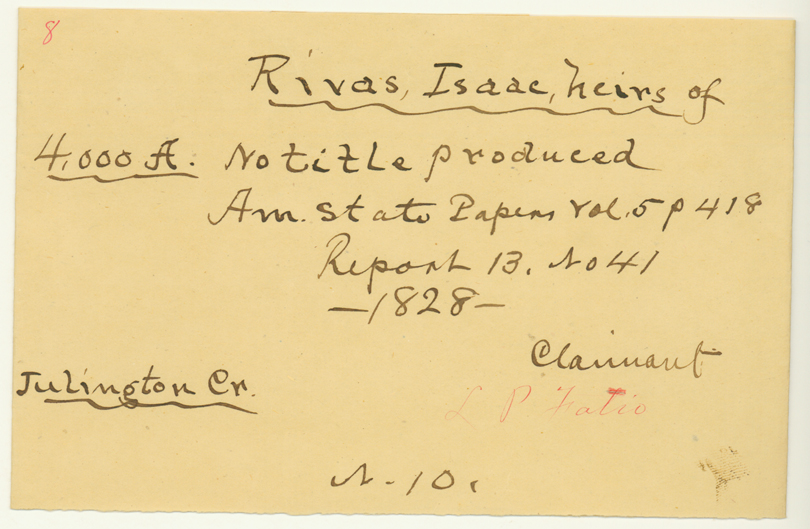 8
Rivas, Isaac, heirs of
4,000 A. No title produced
Am. State Papers Vol. 5 p 418
Report 13. No 41
—1828—
Claimant
Julington Cr.
L P Fatio
N-10.